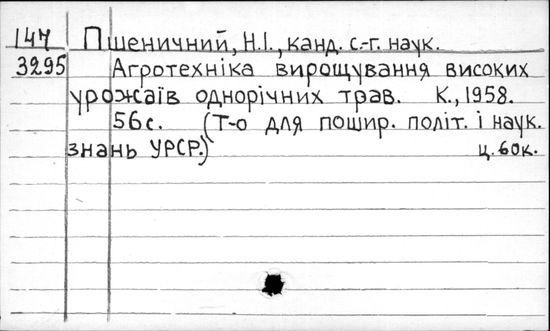 147 Пшеничний, Н.І., канд. с.-г. наук.
3295 Агротехніка вирощування високих
урожаїв однорічних трав. К., 1958.
56с. (Т-о для пошир. політ. і наук.
знань УРСР.) ц. 60к.